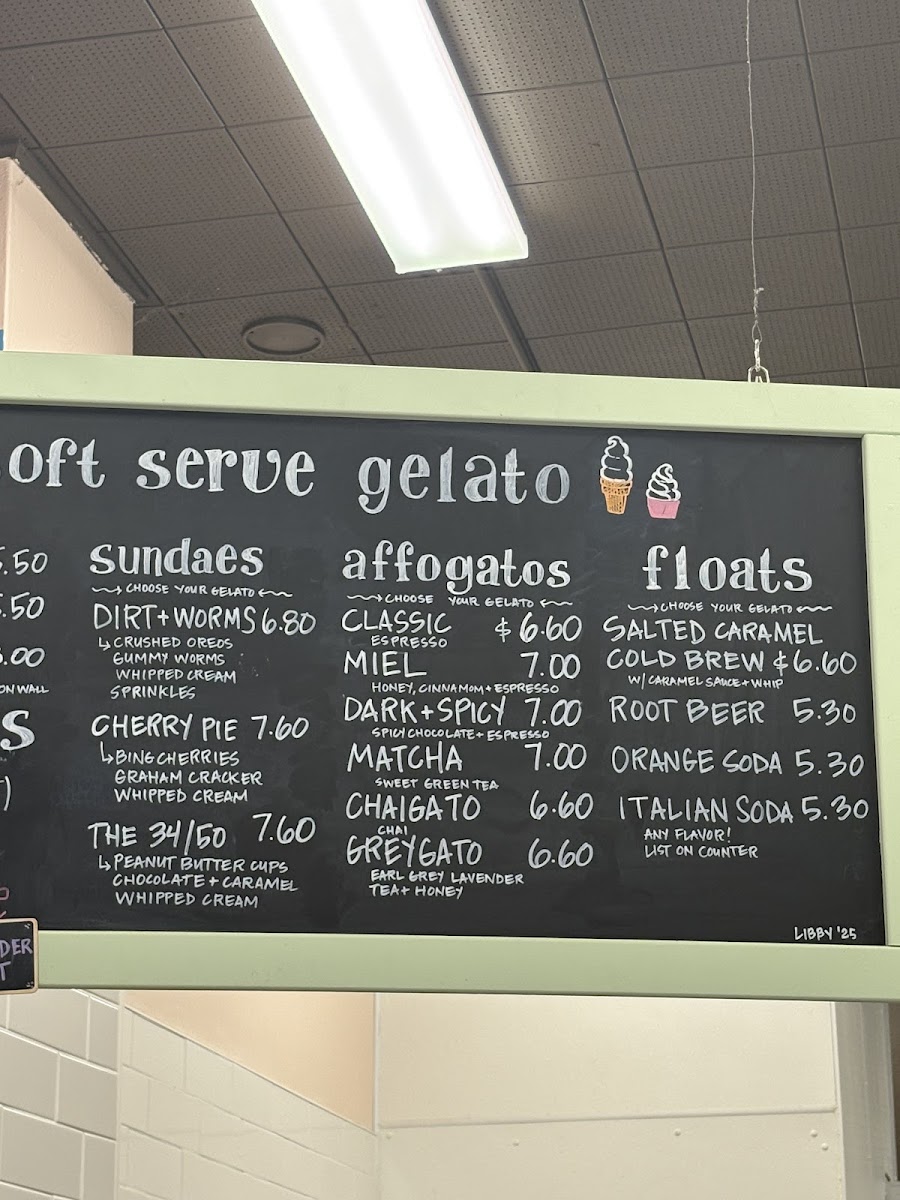 oft serve gelato
.50
.50
.00
ON WALL
S
)
DER
T
sundaes
CHOOSE YOUR GELATO
DIRT+WORMS 6.80
CRUSHED OREOS
GUMMY WORMS
WHIPPED CREAM
SPRINKLES
CHERRY PIE 7.60
BING CHERRIES
GRAHAM CRACKER
WHIPPED CREAM
THE 34/50 7.60
PEANUT BUTTER CUPS
CHOCOLATE + CARAMEL
WHIPPED CREAM
affogatos
CHOOSE YOUR GELATO
CLASSIC $6.60
ESPRESSO
MIEL 7.00
HONEY, CINNAMOM + ESPRESSO
DARK+SPICY 7.00
SPICY CHOCOLATE + ESPRESSO
MATCHA 7.00
SWEET GREEN TEA
CHAIGATO 6.60
CHAI
GREYGATO 6.60
EARL GREY LAVENDER
TEA+ HONEY
floats
CHOOSE YOUR GELATO
SALTED CARAMEL
COLD BREW $6.60
W/ CARAMEL SAUCE + WHIP
ROOT BEER 5.30
ORANGE SODA 5.30
ITALIAN SODA 5.30
ANY FLAVOR!
LIST ON COUNTER
LIBBY '25